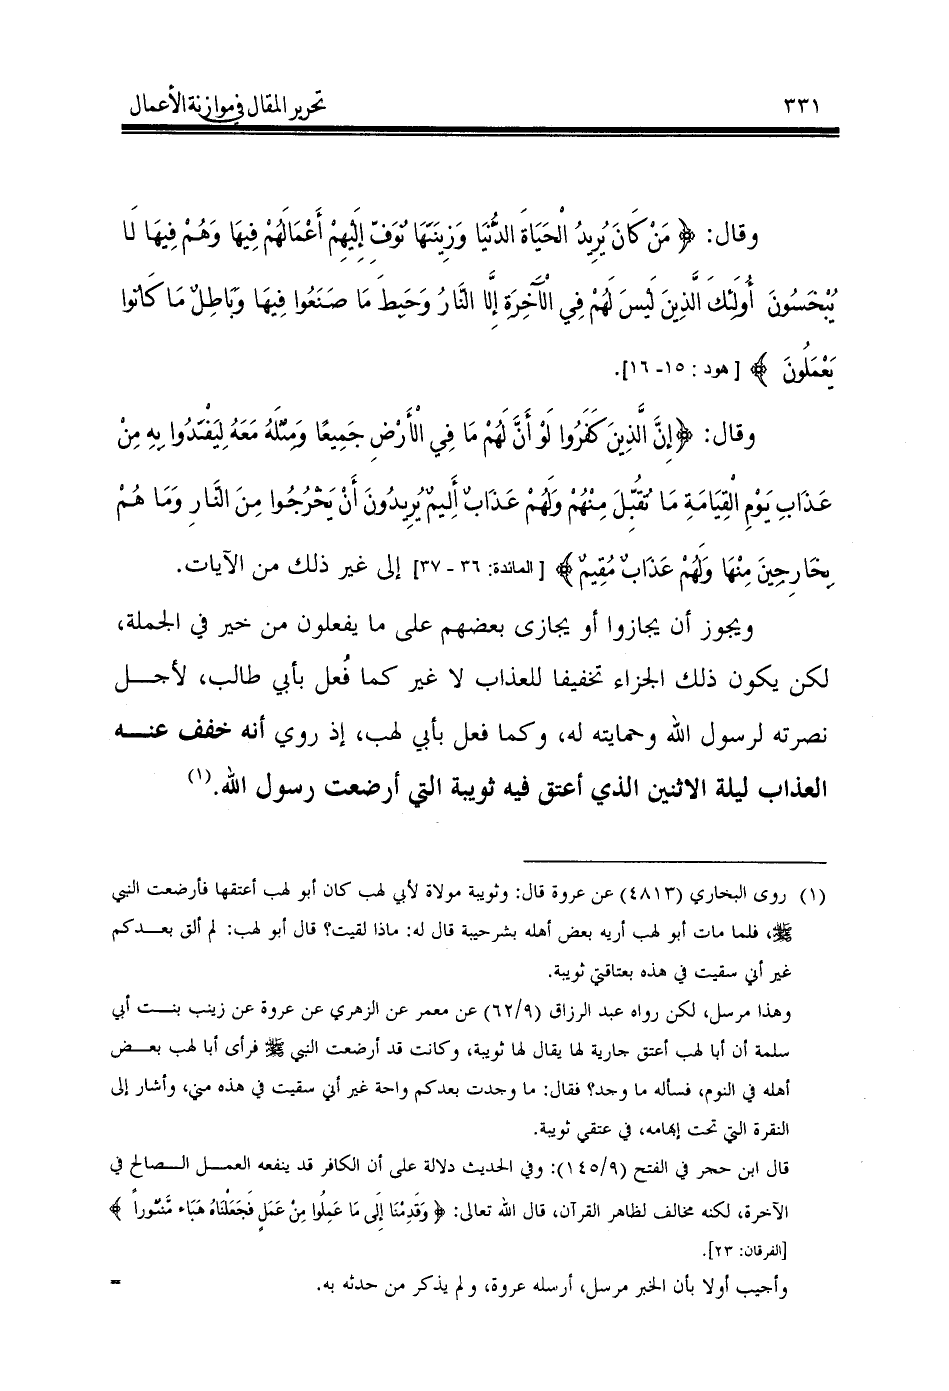 ٣٣١
تحرير المقال في موازنة الأعمال
وقال: ﴿ مَنْ كَانَ يُرِيدُ الْحَيَاةَ الدُّنْيَا وَزِينَتَهَا نُوَفِّ إِلَيْهِمْ أَعْمَالَهُمْ فِيهَا وَهُمْ فِيهَا لَا
يُبْخَسُونَ أُولَئِكَ الَّذِينَ لَيْسَ لَهُمْ فِي الْآخِرَةِ إِلَّا النَّارُ وَحَبِطَ مَا صَنَعُوا فِيهَا وَبَاطِلٌ مَا كَانُوا
يَعْمَلُونَ ﴾ [ هود : ١٥- ١٦].
وقال: ﴿إِنَّ الَّذِينَ كَفَرُوا لَوْ أَنَّ لَهُمْ مَا فِي الْأَرْضِ جَمِيعًا وَمِثْلَهُ مَعَهُ لِيَفْتَدُوا بِهِ مِنْ
عَذَابِ يَوْمِ الْقِيَامَةِ مَا تُقُبِّلَ مِنْهُمْ وَلَهُمْ عَذَابٌ أَلِيمٌ يُرِيدُونَ أَنْ يَخْرُجُوا مِنَ النَّارِ وَمَا هُمْ
بِخَارِجِينَ مِنْهَا وَلَهُمْ عَذَابٌ مُقِيمٌ﴾ [ المائدة: ٣٦ - ٣٧] إلى غير ذلك من الآيات.
ويجوز أن يجازوا أو يجازى بعضهم على ما يفعلون من خير في الجملة،
لكن يكون ذلك الجزاء تخفيفا للعذاب لا غير كما فُعل بأبي طالب، لأجل
نصرته لرسول الله وحمايته له، وكما فعل بأبي لهب، إذ روي أنه خفف عنه
العذاب ليلة الاثنين الذي أعتق فيه ثويبة التي أرضعت رسول الله.(١)
(١) روى البخاري (٤٨١٣) عن عروة قال: وثويبة مولاة لأبي لهب كان أبو لهب أعتقها فأرضعت النبي
ﷺ، فلما مات أبو لهب أريه بعض أهله بشرحيبة قال له: ماذا لقيت؟ قال أبو لهب: لم ألق بعدكم
غير أني سقيت في هذه بعتاقتي ثويبة.
وهذا مرسل، لكن رواه عبد الرزاق (٦٢/٩) عن معمر عن الزهري عن عروة عن زينب بنت أبي
سلمة أن أبا لهب أعتق جارية لها يقال لها ثويبة، وكانت قد أرضعت النبي ﷺ فرأى أبا لهب بعض
أهله في النوم، فسأله ما وجد؟ فقال: ما وجدت بعدكم واحة غير أني سقيت في هذه مني، وأشار إلى
النقرة التي تحت إبهامه، في عتقي ثويبة.
قال ابن حجر في الفتح (١٤٥/٩): وفي الحديث دلالة على أن الكافر قد ينفعه العمل الصالح في
الآخرة، لكنه مخالف لظاهر القرآن، قال الله تعالى: ﴿ وَقَدِمْنَا إِلَى مَا عَمِلُوا مِنْ عَمَلٍ فَجَعَلْنَاهُ هَبَاء مَّنثُوراً ﴾
[الفرقان: ٢٣].
وأجيب أولا بأن الخبر مرسل، أرسله عروة، ولم يذكر من حدثه به. =